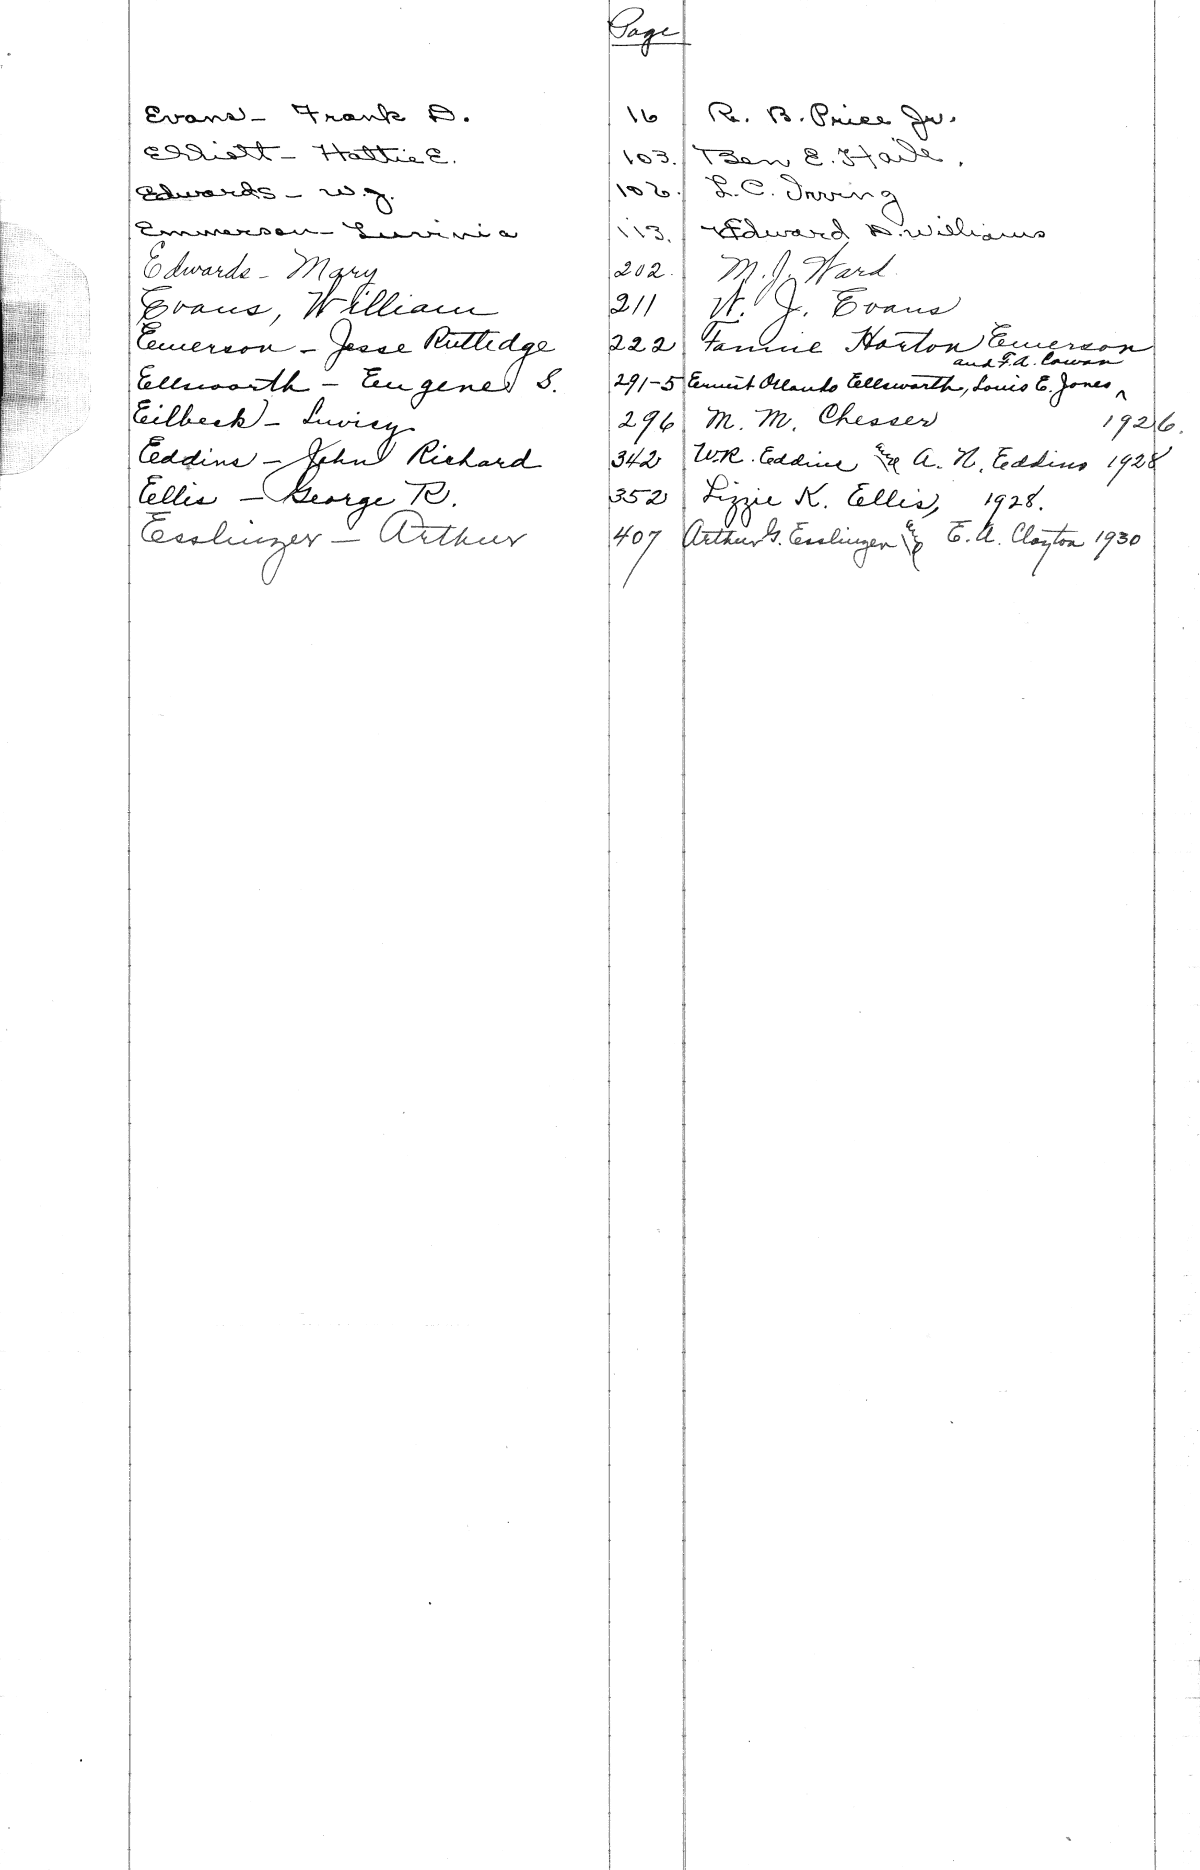 Page
Evans - Frank D. 16 R. B. Price Jr.
Elliott - Hattie E. 103. Ben E. Haile.
Edwards - W. J. 106. L. C. Irving
Emmerson - Luvinia 113. Edward D. Williams
Edwards - Mary 202. M. J. Ward
Evans, William 211 W. J. Evans
Emerson - Jesse Rutledge 222 Fannie Horton Emerson
and F. A. Cowan
Ellsworth - Eugene S. 291-5 Ernest Orlando Ellsworth, Louis E. Jones ^
Eilbeck - Luvicy 296 M. M. Chesser 1926.
Eddins - John Richard 342 W. R. Eddins and A. N. Eddins 1928
Ellis - George R. 352 Lizzie K. Ellis, 1928.
Esslinger - Arthur 407 Arthur G. Esslinger and E. A. Clayton 1930